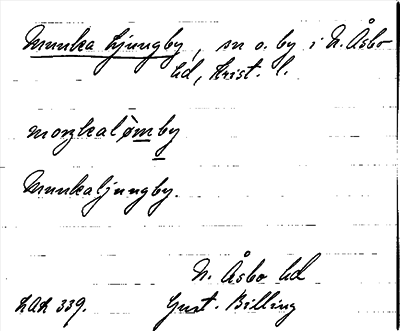 Munka Ljungby, sn o. by i N. Åsbo
hd, Krist. l.
moŋkalömby
Munkaljungby.
N. Åsbo hd
LAL 339. Gust. Billing